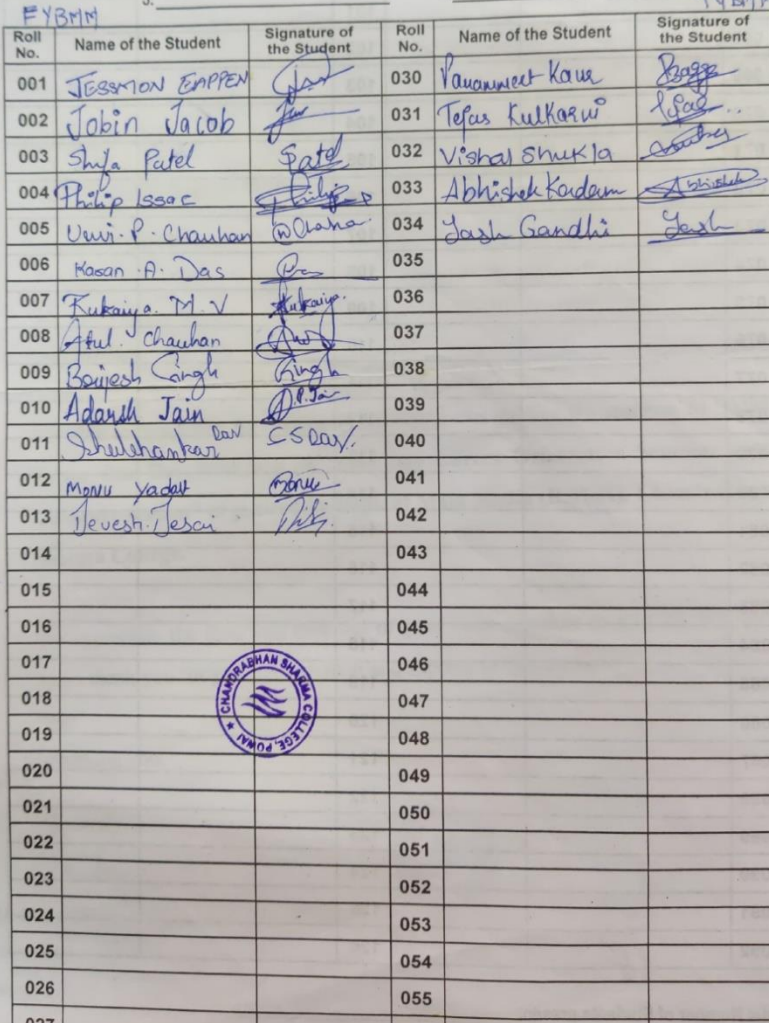 FYBMM
Roll No. Name of the Student Signature of the Student Roll No. Name of the Student Signature of the Student
001 JESSMON EAPPEN 030 Kaur
002 Jobin Jacob 031 Tejas Kulkarni
003 Shifa Patel Patel 032 Vishal Shukla
004 Philip Issac Philip 033 Abhishek Kadam Abhishek
005 Urvi. P. Chauhan 034 Yash Gandhi Yash
006 Karan . A . Das 035
007 Rukaiya. M. V Rukaiya. 036
008 Atul. Chauhan 037
009 Boijesh Singh Singh 038
010 Adarsh Jain P. Jain 039
011 040
012 Monu Yadav Monu 041
013 Devesh. Desai 042
014 043
015 044
016 045
017 046
018 047
019 048
020 049
021 050
022 051
023 052
024 053
025 054
026 055
027
CHANDRABHAN SHARMA COLLEGE, POWAI